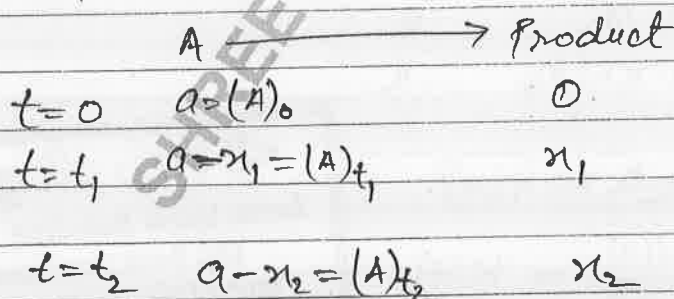 A ⟶ Product
t=0 a=(A)₀ 0
t=t₁ a-x₁=(A)t₁ x₁
t=t₂ a-x₂=(A)t₂ x₂
SHREE